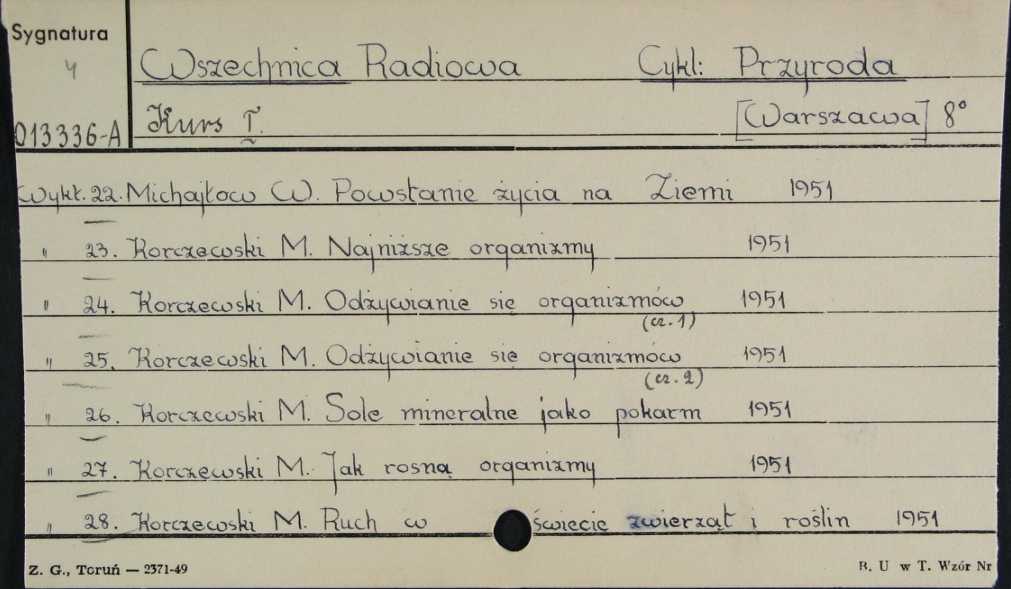 Sygnatura
4
013336-A
Wszechnica Radiowa Cykl: Przyroda
Kurs I. [Warszawa] 8°
Wykł. 22. Michajłow W. Powstanie życia na Ziemi 1951
" 23. Korczewski M. Najniższe organizmy 1951
" 24. Korczewski M. Odżywianie się organizmów 1951
(cz. 1)
" 25. Korczewski M. Odżywianie się organizmów 1951
(cz. 2)
" 26. Korczewski M. Sole mineralne jako pokarm 1951
" 27. Korczewski M. Jak rosną organizmy 1951
" 28. Korczewski M. Ruch w świecie zwierząt i roślin 1951
Z. G., Toruń — 2371-49
B. U w T. Wzór Nr